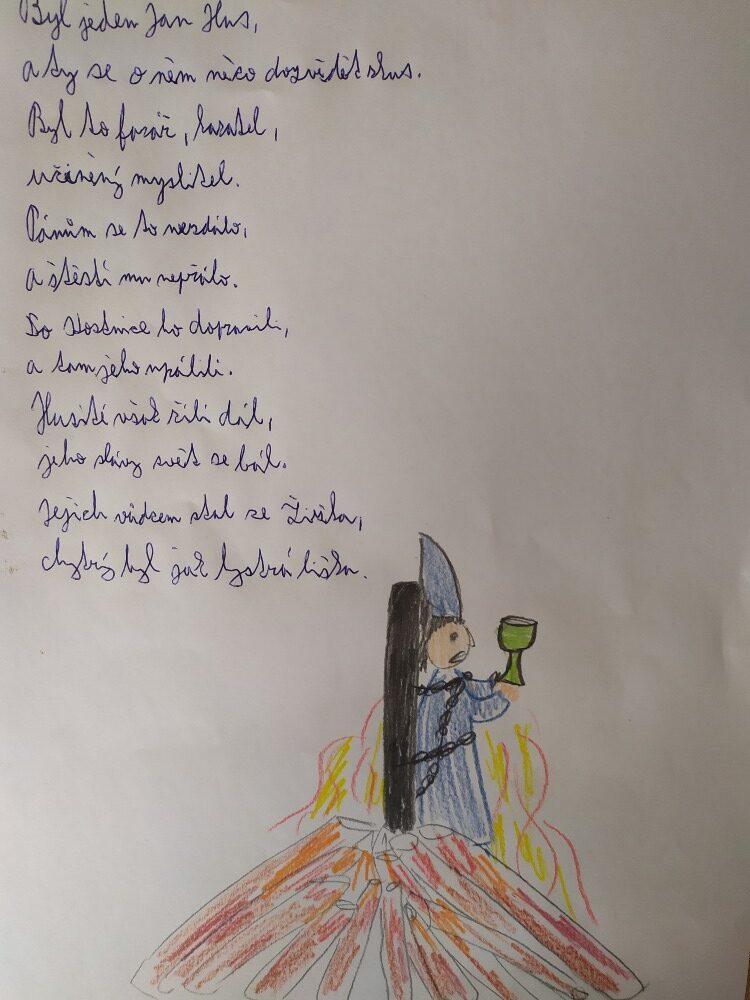 Byl jeden Jan Hus,
a ty se o něm něco dozvědět zkus.
Byl to farář, kazatel,
učiněný myslitel.
Pánům se to nezdálo,
a štěstí mu nepřálo.
Do Kostnice ho dopravili,
a tam jeho upálili.
Husité však žili dál,
jeho slávy svět se bál.
Jejich vůdcem stal se Žižka,
chytrý byl jak bystrá liška.